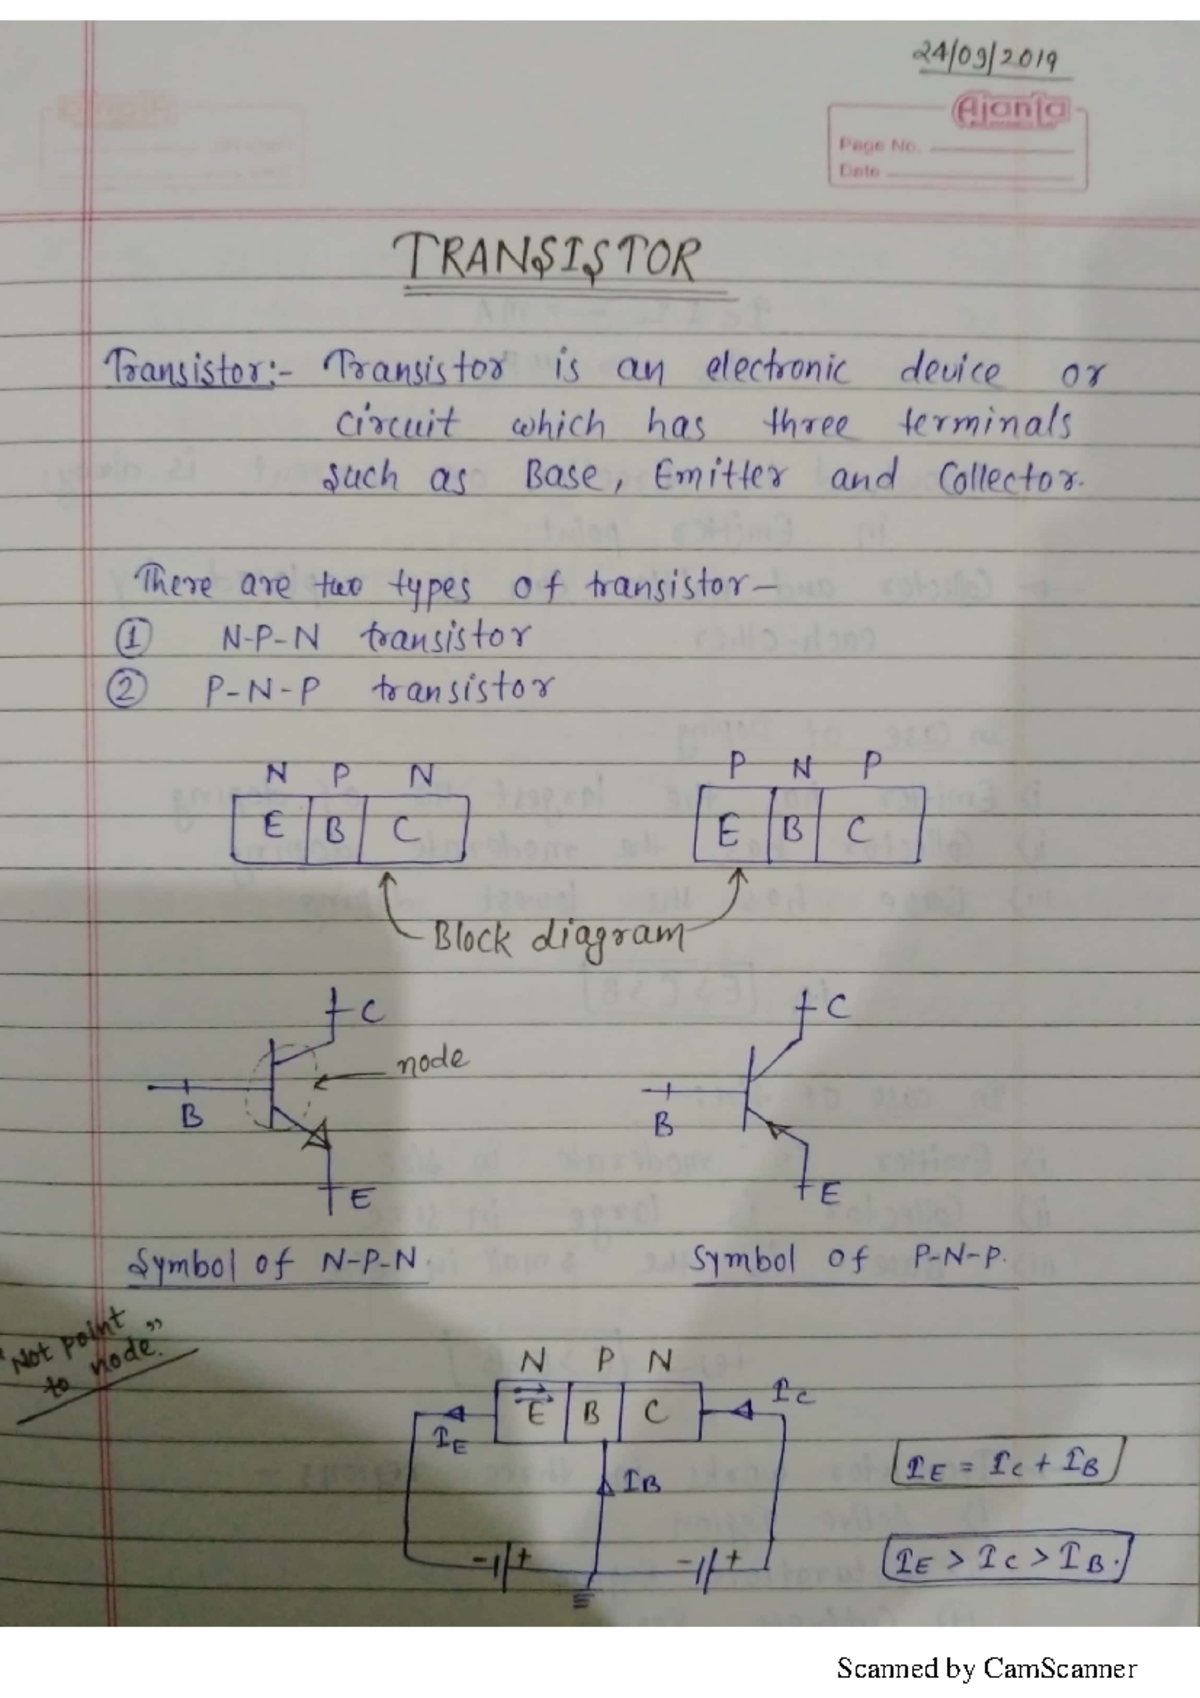 24/09/2019
Ajanta
Page No.
Date
TRANSISTOR
Transistor:- Transistor is an electronic device or
circuit which has three terminals
such as Base, Emitter and Collector.
There are two types of transistor-
① N-P-N transistor
② P-N-P transistor
N P N
P N P
E B C
E B C
Block diagram
C
node
B
E
C
B
E
Symbol of N-P-N
Symbol of P-N-P.
"Not point
to node."
N P N
E B C
IE
IC
IB
IE = IC + IB
- +
- +
IE > IC > IB.
Scanned by CamScanner